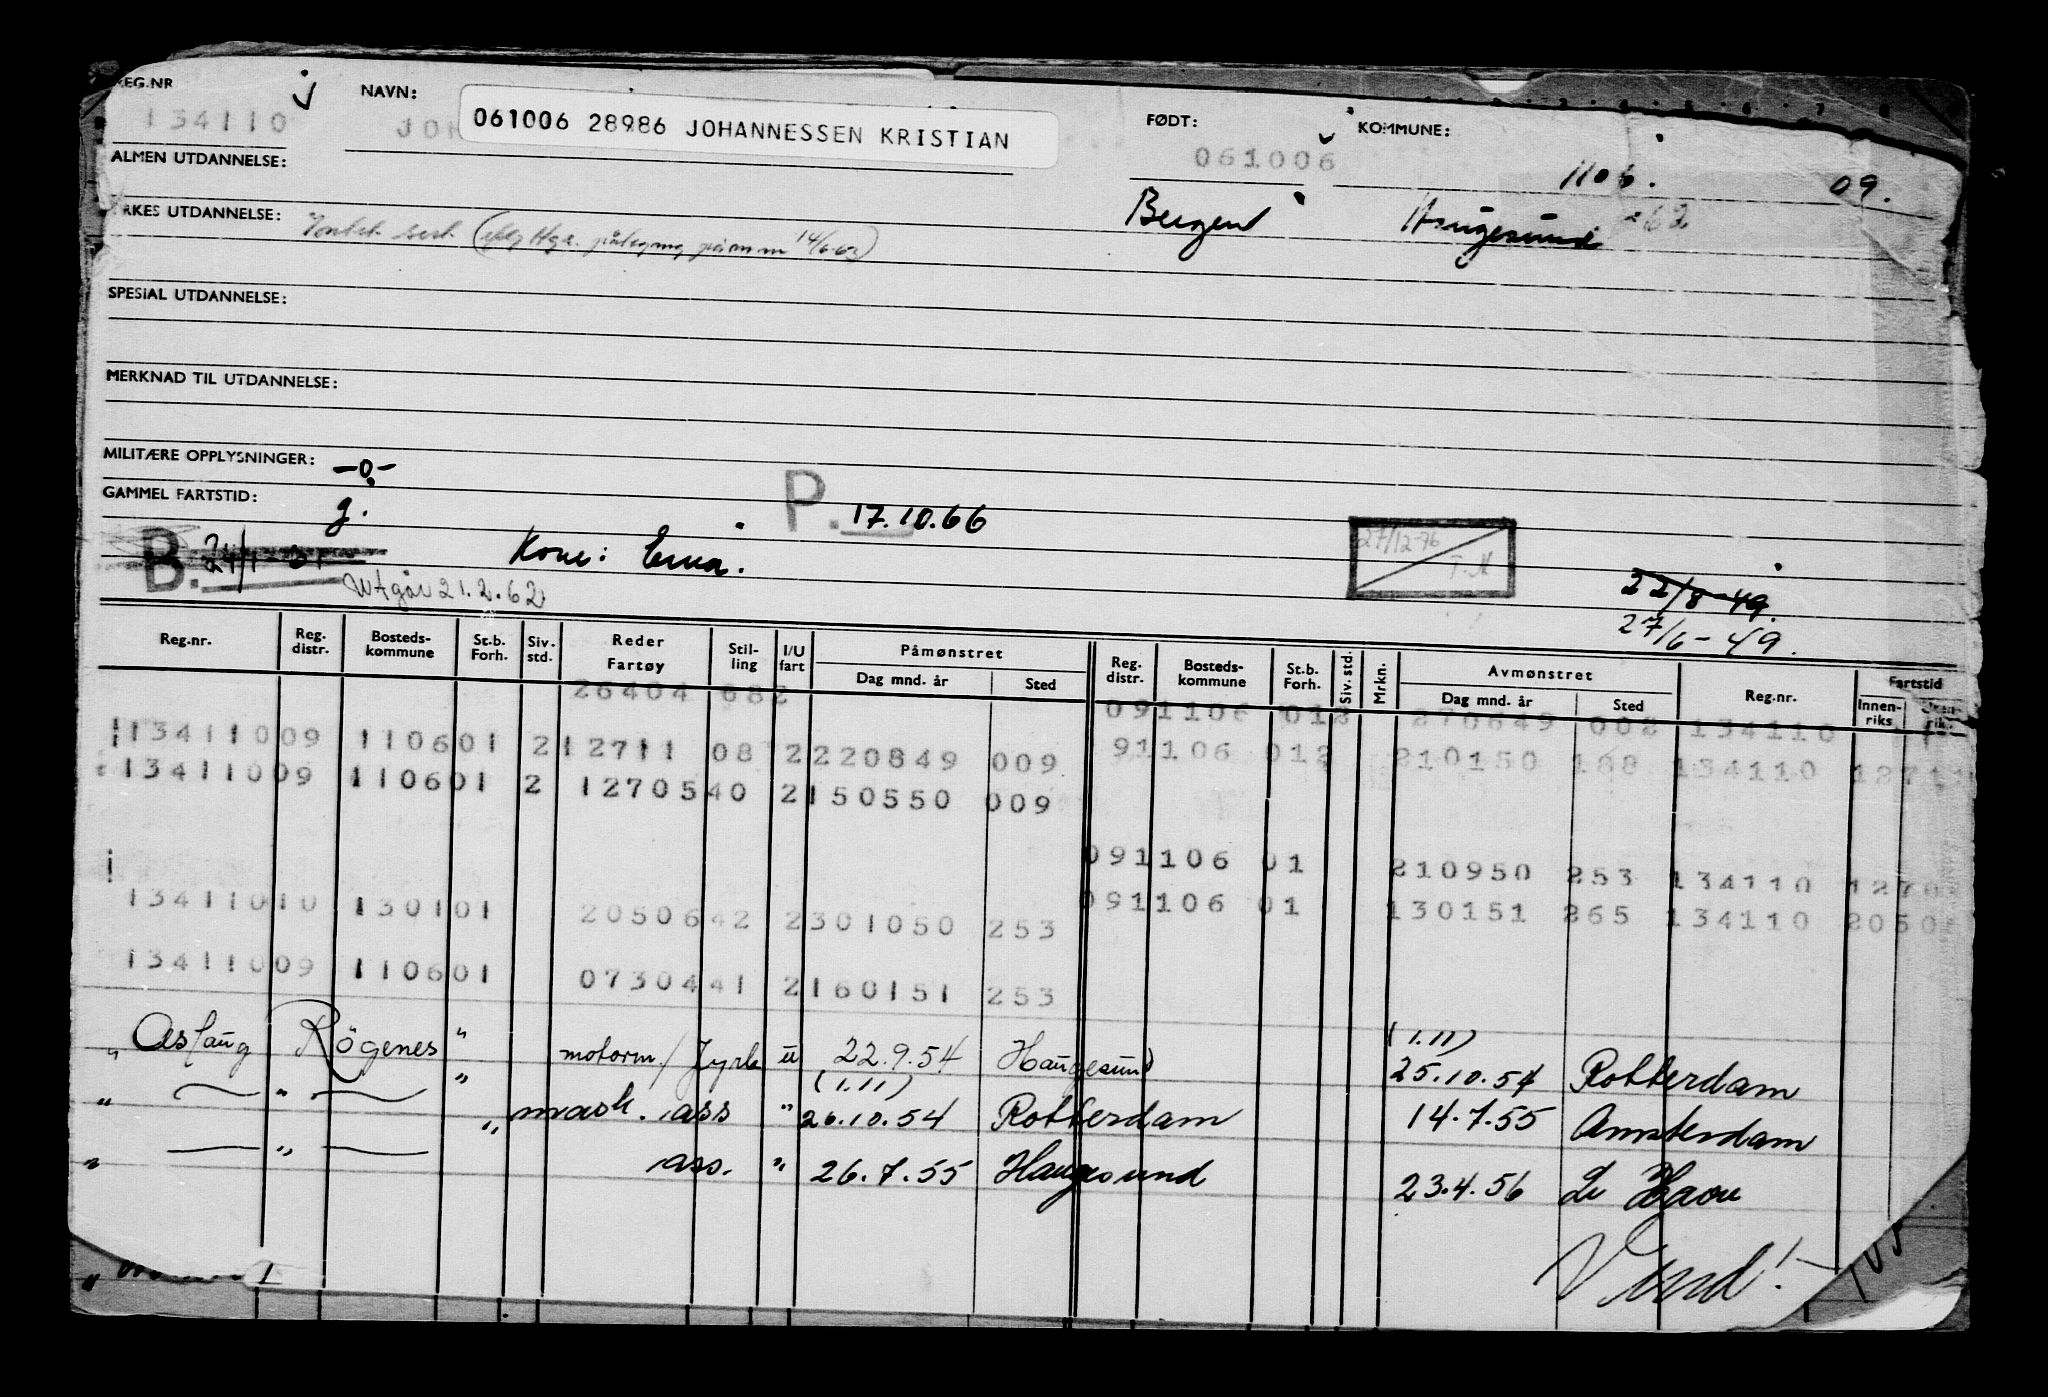 REG.NR
NAVN:
FØDT:
KOMMUNE:
134110
061006 28986 JOHANNESSEN KRISTIAN
061006
1106.
09.
ALMEN UTDANNELSE:
YRKES UTDANNELSE:
Bergen
Haugesund
SPESIAL UTDANNELSE:
MERKNAD TIL UTDANNELSE:
MILITÆRE OPPLYSNINGER: -0-
GAMMEL FARTSTID: g.
P. 17.10.66
B. 24/1-
Kone: Erna.
27/12-76
T.M
Utgår 21.2.62
22/8-49.
27/6-49.
Reg.nr. Reg. distr. Bosteds- kommune St.b. Forh. Siv. std. Reder Fartøy Stil- ling I/U fart Påmønstret Dag mnd. år Sted Reg. distr. Bosteds- kommune St.b. Forh. Siv. std. Mrkn. Avmønstret Dag mnd. år Sted Reg.nr. Fartstid Innen- riks
26404 682 091106 012 270849 002 134110
13411009 110601 2 12711 08 2 220849 009 91106 012 210150 188 134110 1271
13411009 110601 2 12705 40 2 150550 009
091106 01 210950 253 134110 1270
13411010 130101 20506 42 2 301050 253 091106 01 130151 265 134110 2050
13411009 110601 07304 41 2 160151 253
Aslaug Rögenes " motorm/Fyrb u 22.9.54 Haugesund (1.11) 25.10.54 Rotterdam
" — " — " mask. ass " (1.11) 26.10.54 Rotterdam 14.7.55 Amsterdam
" — " — " ass. " 26.7.55 Haugesund 23.4.56 Le Havre
Vend!